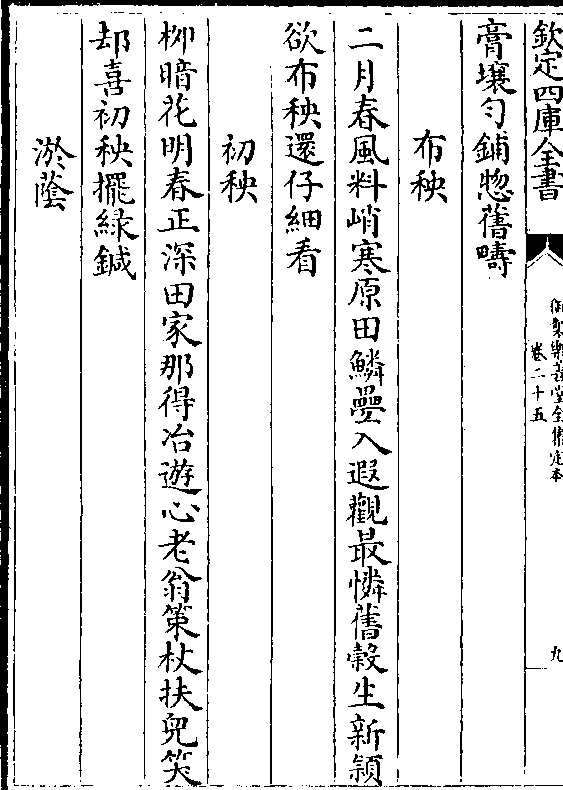 欽定四庫全書
御製樂善堂全集定本
卷二十五
九
膏壤勻鋪惣舊疇
布秧
二月春風料峭寒原田鱗疊入遐觀最憐舊穀生新穎
欲布秧還仔細看
初秧
柳暗花明春正深田家那得冶遊心老翁策杖扶兒笑
却喜初秧擺綠鍼
淤蔭